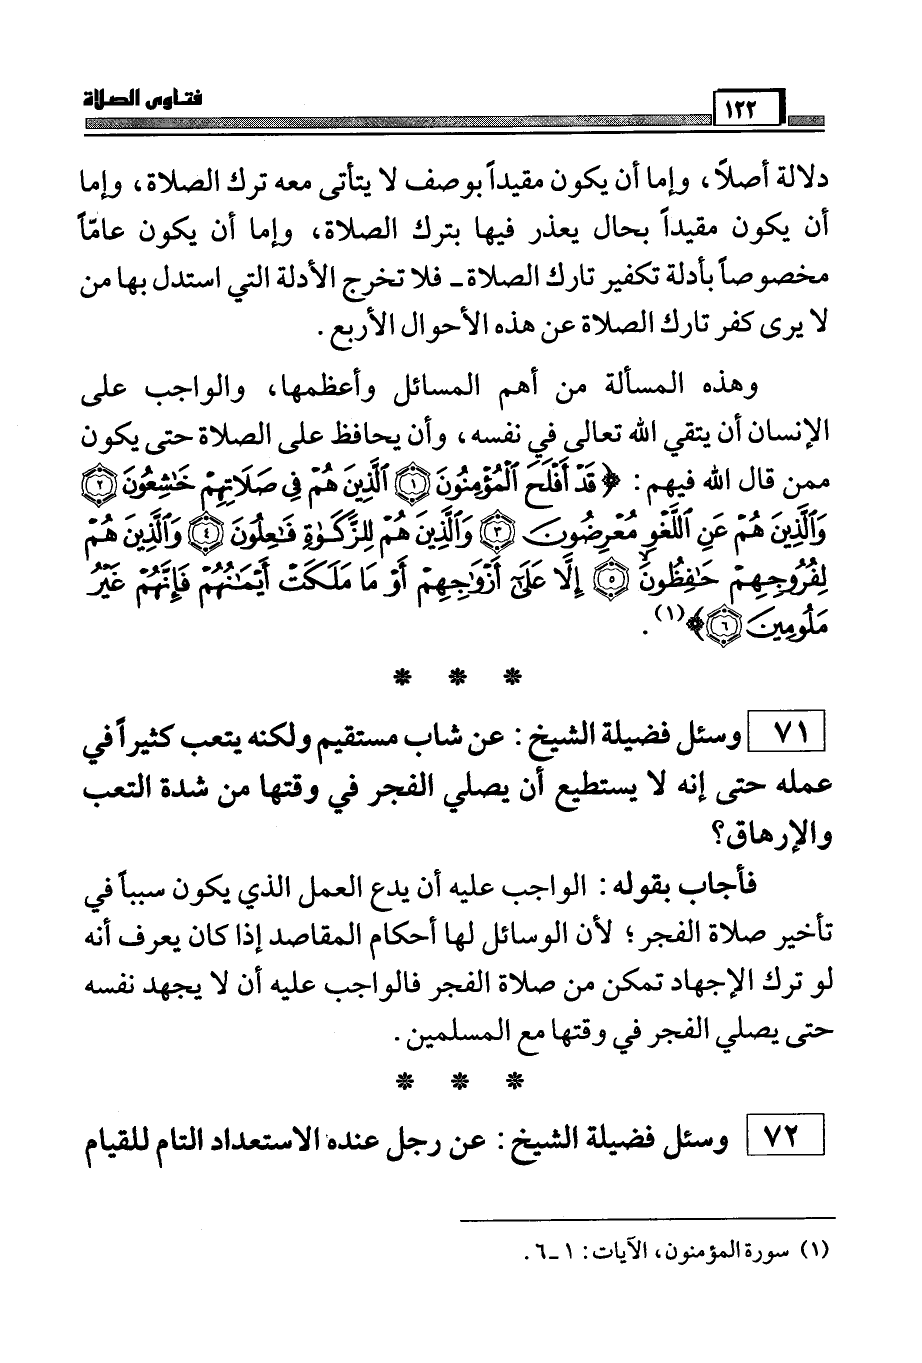 فتاوى الصلاة
١٢٢
دلالة أصلاً، وإما أن يكون مقيداً بوصف لا يتأتى معه ترك الصلاة، وإما
أن يكون مقيداً بحال يعذر فيها بترك الصلاة، وإما أن يكون عامّاً
مخصوصاً بأدلة تكفير تارك الصلاة - فلا تخرج الأدلة التي استدل بها من
لا يرى كفر تارك الصلاة عن هذه الأحوال الأربع .
وهذه المسألة من أهم المسائل وأعظمها، والواجب على
الإنسان أن يتقي الله تعالى في نفسه، وأن يحافظ على الصلاة حتى يكون
ممن قال الله فيهم : ﴿ قَدْ أَفْلَحَ الْمُؤْمِنُونَ ١ الَّذِينَ هُمْ فِي صَلَاتِهِمْ خَٰشِعُونَ ٢
وَالَّذِينَ هُمْ عَنِ اللَّغْوِ مُعْرِضُونَ ٣ وَالَّذِينَ هُمْ لِلزَّكَوٰةِ فَٰعِلُونَ ٤ وَالَّذِينَ هُمْ
لِفُرُوجِهِمْ حَٰفِظُونَ ٥ إِلَّا عَلَىٰٓ أَزْوَٰجِهِمْ أَوْ مَا مَلَكَتْ أَيْمَٰنُهُمْ فَإِنَّهُمْ غَيْرُ
مَلُومِينَ ٦ ﴾(١) .
* * *
٧١ وسئل فضيلة الشيخ : عن شاب مستقيم ولكنه يتعب كثيراً في
عمله حتى إنه لا يستطيع أن يصلي الفجر في وقتها من شدة التعب
والإرهاق؟
فأجاب بقوله : الواجب عليه أن يدع العمل الذي يكون سبباً في
تأخير صلاة الفجر؛ لأن الوسائل لها أحكام المقاصد إذا كان يعرف أنه
لو ترك الإجهاد تمكن من صلاة الفجر فالواجب عليه أن لا يجهد نفسه
حتى يصلي الفجر في وقتها مع المسلمين .
* * *
٧٢ وسئل فضيلة الشيخ : عن رجل عنده الاستعداد التام للقيام
(١) سورة المؤمنون، الآيات : ١ -٦ .